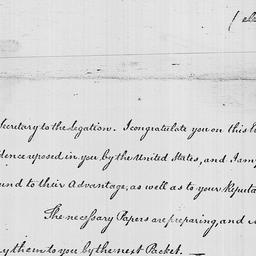 Secretary to the Legation. I congratulate you on this
dence reposed in you by the United States, and I am
und to their Advantage, as well as to your Reputa
The necessary Papers are preparing, and
them to you by the next Packet.